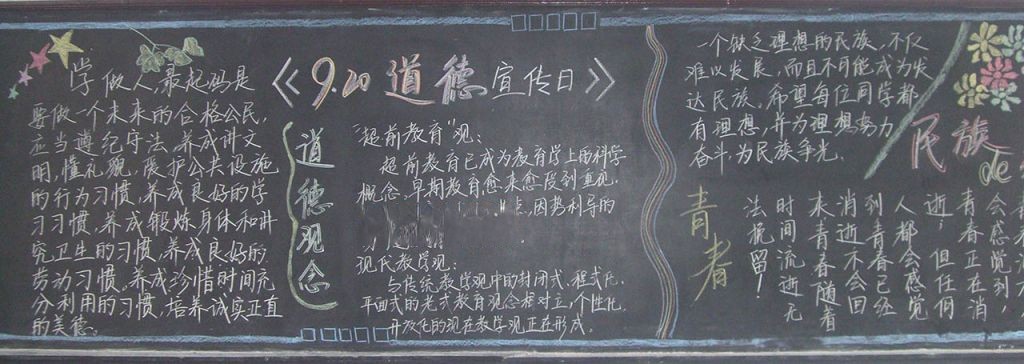 学做人,最起码是
要做一个未来的合格公民,
应当遵纪守法,养成讲文
明,懂礼貌,爱护公共设施
的行为习惯,养成良好的学
习习惯,养成锻炼身体和讲
究卫生的习惯,养成良好的
劳动习惯,养成珍惜时间充
分利用的习惯,培养诚实正直
的美德.
《9.20道德宣传日》
道德观念
"超前教育"观:
超前教育已成为教育学上的科学
概念,早期教育愈来愈受到重视,
点,因势利导的
现代教学观:
与传统教学观中的封闭式,程式化,
平面式的老式教育观念相对立,个性化,
开放化的现在教学观正在形成。
一个缺乏理想的民族,不仅
难以发展,而且不可能成为发
达民族,希望每位同学都
有理想,并为理想努力
奋斗,为民族争光.
民族
de
会感觉到,
青春正在消
逝,但任何
人都会感觉
到青春已经
消逝不会回
来青春随着
时间流逝无
法挽留!
青春